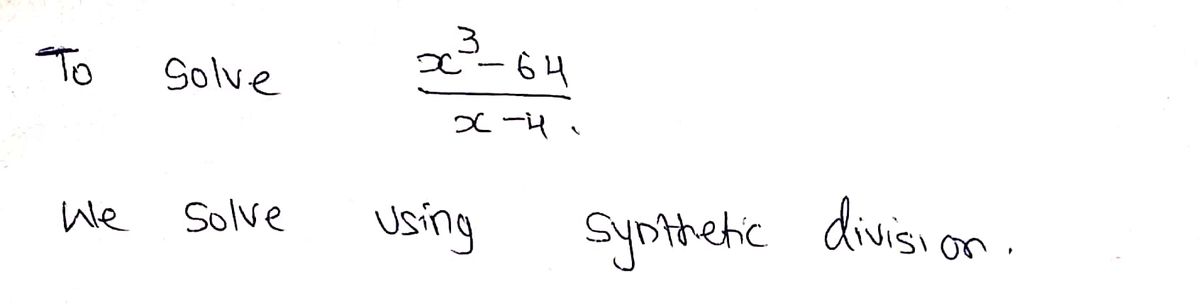 To Solve x³-64
x-4.
We Solve Using Synthetic division.